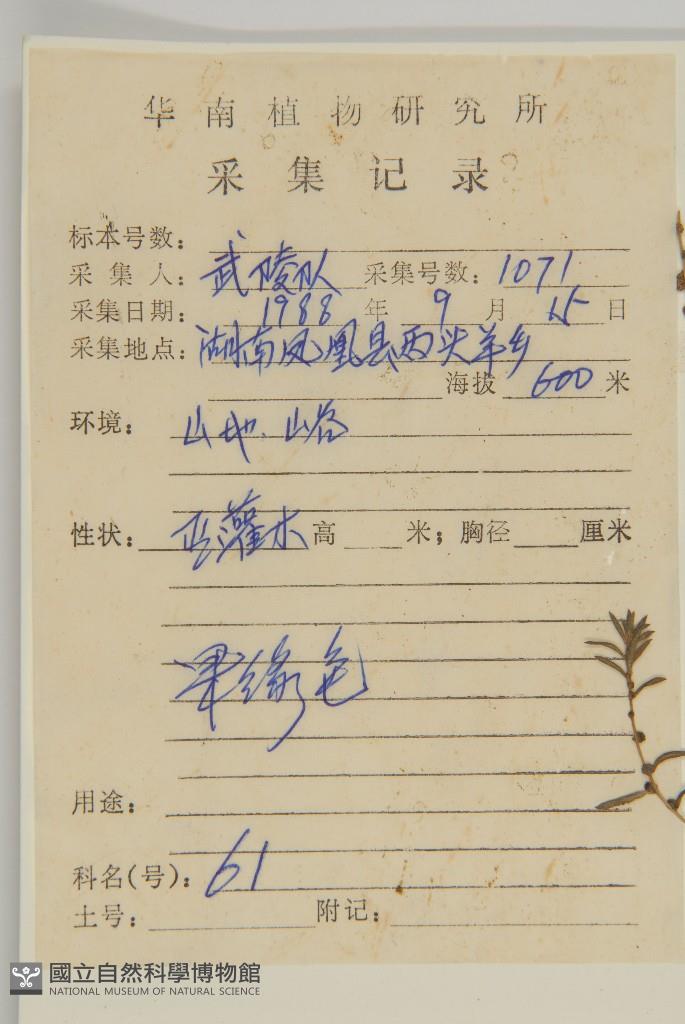 华南植物研究所
采集记录
标本号数：
采集人：武陵队 采集号数：1071
采集日期：1988年9月15日
采集地点：湖南凤凰县两头羊乡
海拔 600 米
环境：山地、山谷
性状：灌木 高 米；胸径 厘米
果绿色
用途：
科名(号)：61
土号： 附记：
國立自然科學博物館
NATIONAL MUSEUM OF NATURAL SCIENCE